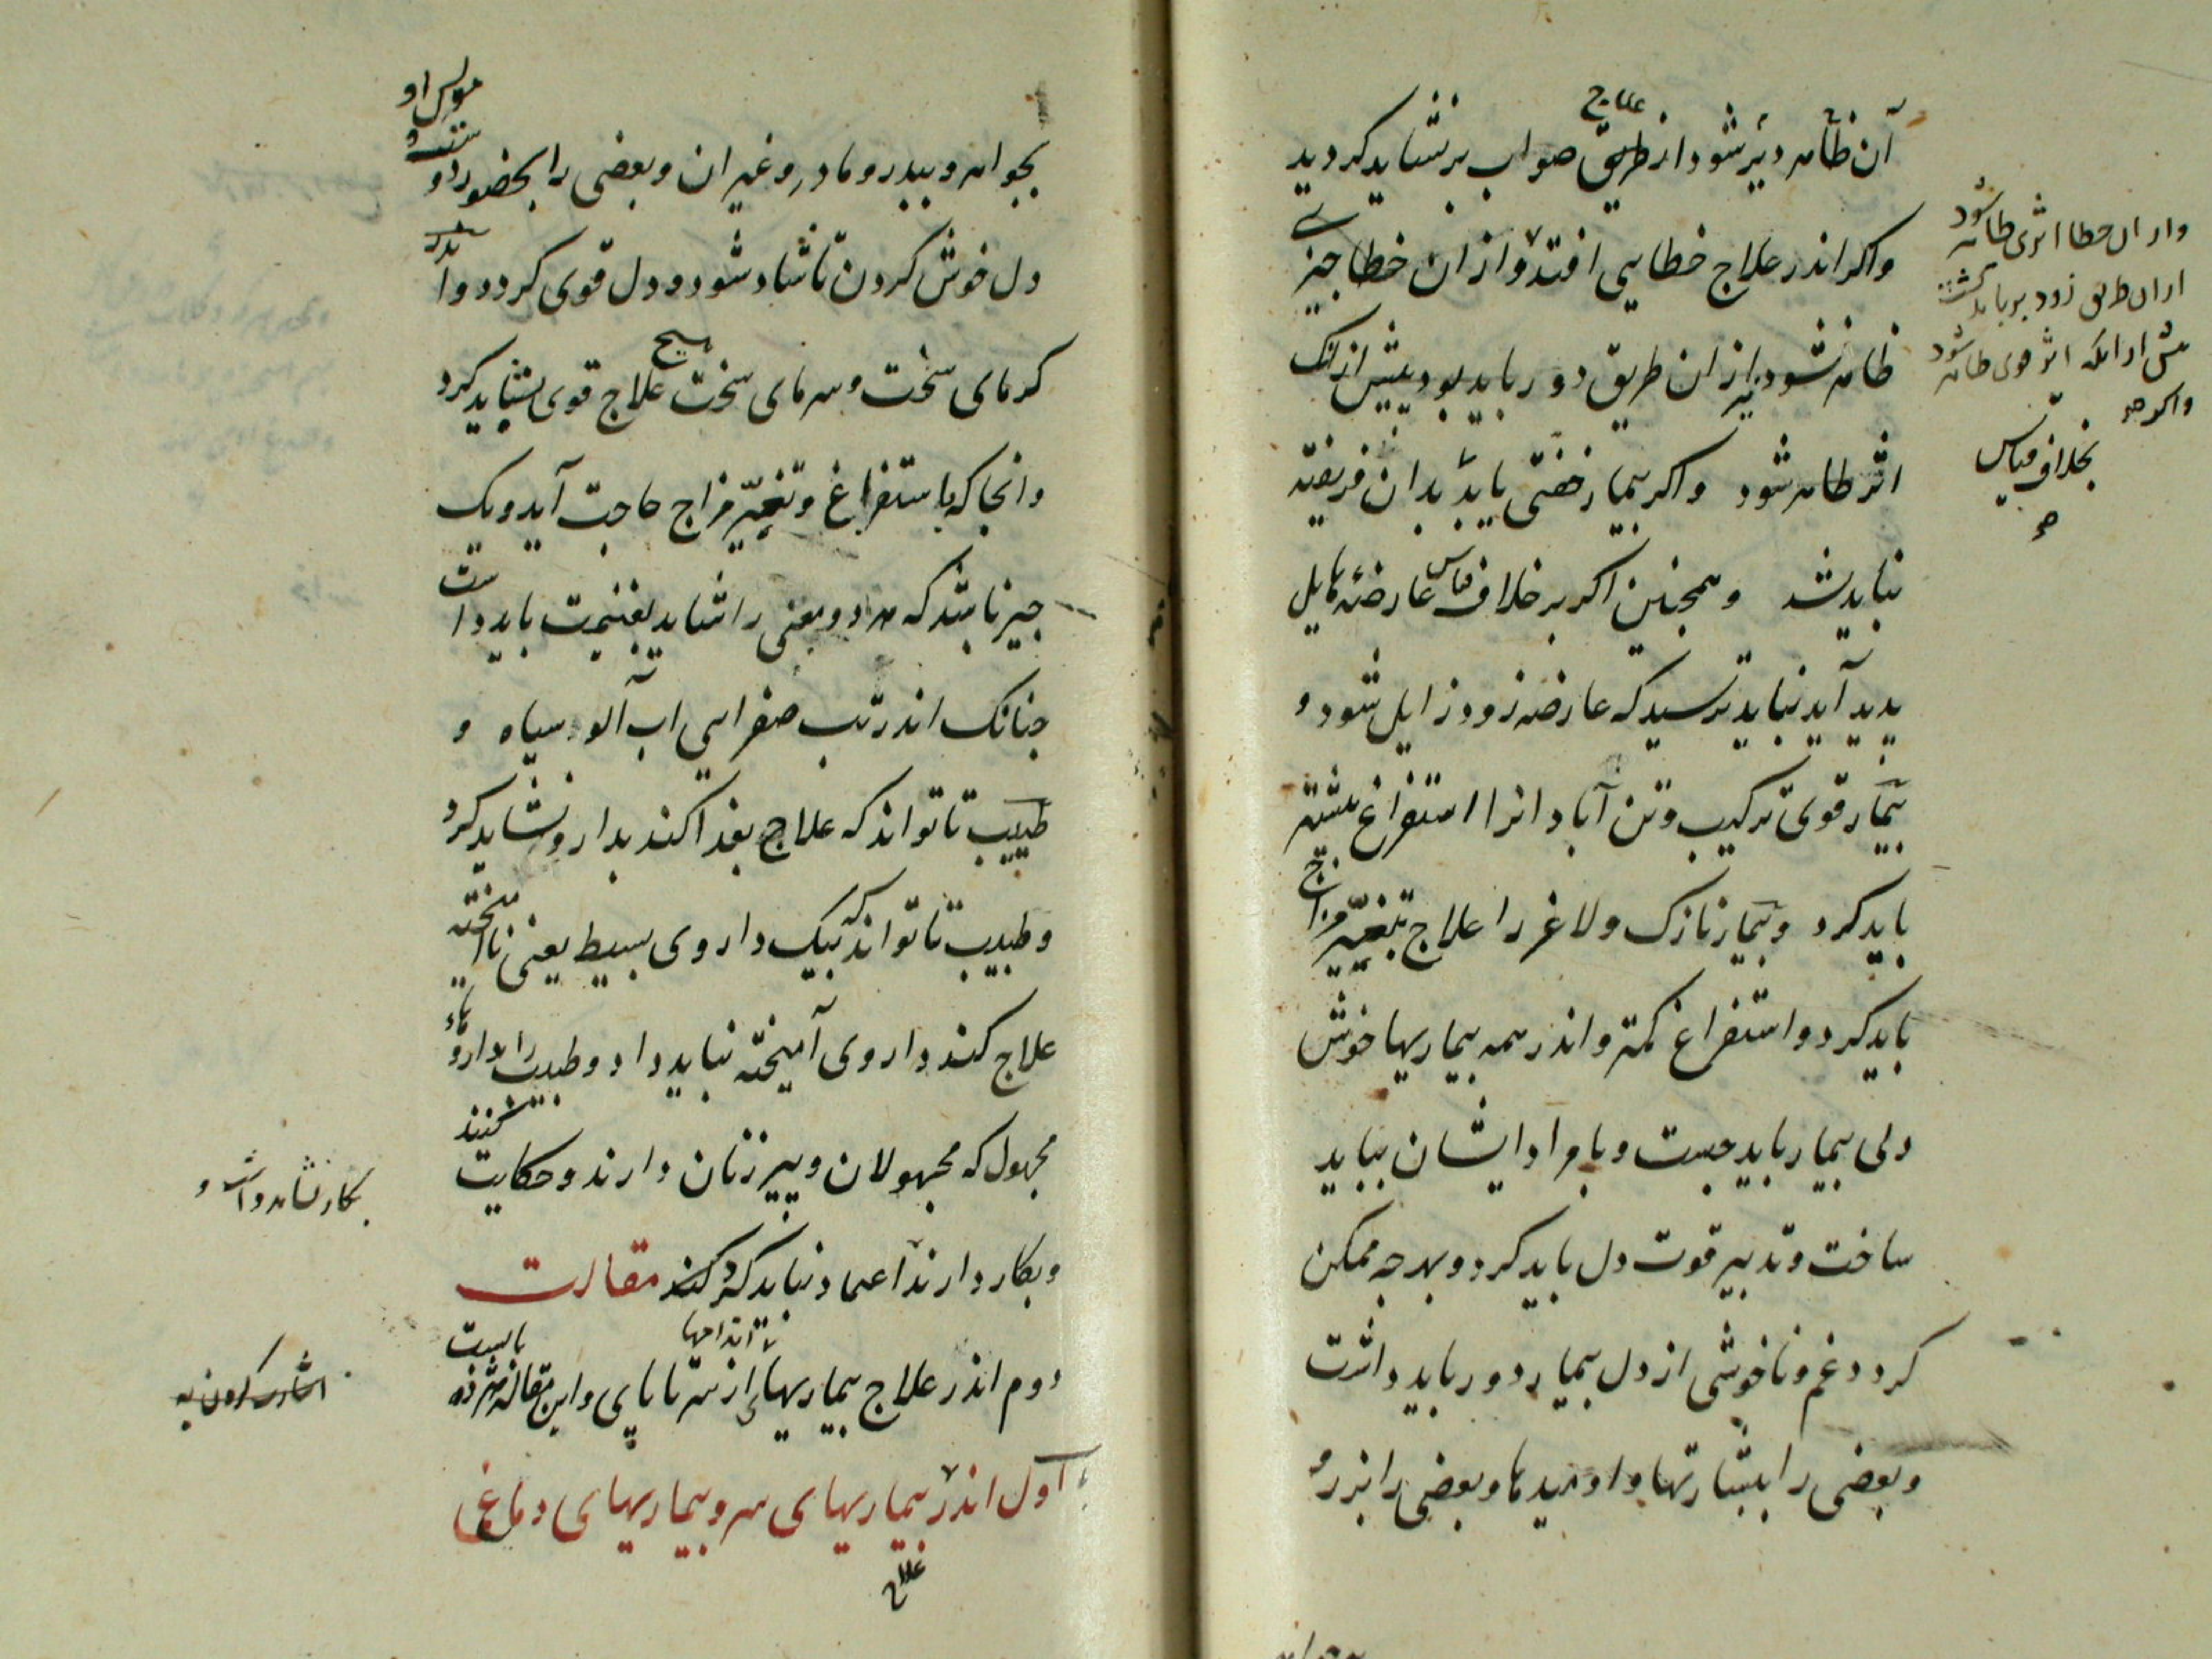 آن ظاهر دیرتر شود از طریق علاج صواب برنشاید کردید
واکر اندر علاج خطایی افتد و از ان خطا چیزی
ظاهر نشود نیز ازان طریق دور باید بود بیشتر از انک
اثر ظاهر شود واکر بیمار خفتی یابد بدان فریفته
نباید شد وهمجنین اکر بر خلاف قیاس عارضهٔ هایل
بدید آید نباید ترسید که عارضه زود زایل شود و
بیمار قوی ترکیب وتن آبادانرا استفراغ بیشتر
باید کرد وبیمار نازک ولاغر را علاج بتغییر مزاج
باید کرد واستفراغ کمتر واندر همه بیماریها خوش
دلی بیمار باید جست وبامراد ایشان بباید
ساخت وتدبیر قوت دل باید کرد وبهرجه ممکن
کردد غم وناخوشی از دل بیمار دور باید داشت
وبعضی را ببشارتها واومیدها وبعضی را بزر و
واز ان خطا اثری ظاهر نشود
ازان طریق زود برباید کشت
پیش ازانکه اثر قوی ظاهر شود
واکر جه
بخلاف قیاس
بجواهر وببدر ومادر وغیر ان وبعضی را بحضور دو
مونس او
دل خوش کردن تا شاد شود ودل قوی کردد واندر
کرمای سخت وسرمای سخت هیج علاج قوی نشاید کرد
وانجا که باستفراغ وتغییر مزاج حاجت آید ویک
جیز باشد که هر دو معنی را شاید بغنیمت باید داشت
جنانک اندر تب صفرایی اب آلو سیاه و
طبیب تا تواند که علاج بغذا کند بدارو نشاید کرد
وطبیب تا تواند که بیک داروی بسیط یعنی ناآمیخته
علاج کند داروی آمیخته نباید داد وطبیب را بداروهاء
مجهول که مجهولان وپیر زنان دارند وحکایت کنند
وبکار دارند اعتماد نباید کرد کند مقالت
دوم اندر علاج بیماریهای اندامها از سر تا پای واین مقاله
بابست
اول اندر بیماریهای سر وبیماریهای دماغی
علاج
بکار نشاید داشت و